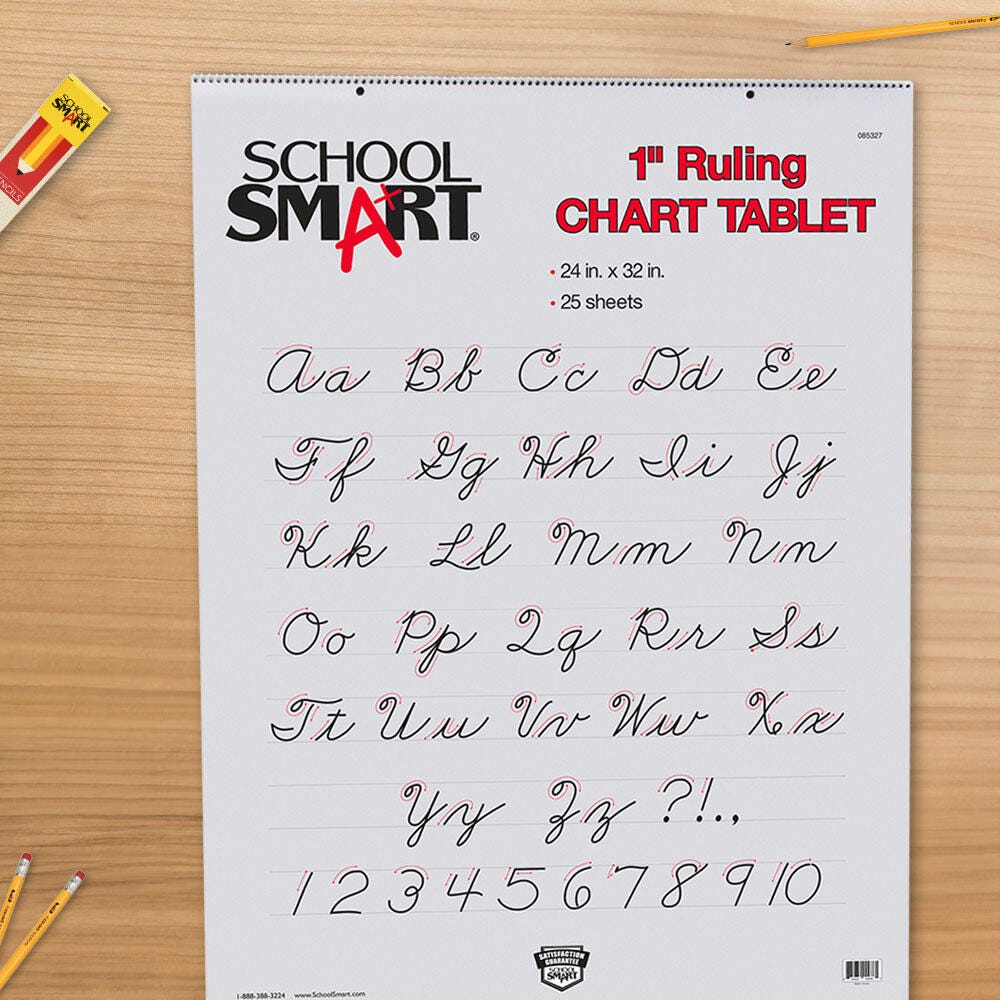 SCHOOL SMART
SCHOOL
SMART
PENCILS
085327
SCHOOL
SMA+RT®
1" Ruling
CHART TABLET
• 24 in. x 32 in.
• 25 sheets
Aa Bb Cc Dd Ee
Ff Gg Hh Ii Jj
Kk Ll Mm Nn
Oo Pp Qq Rr Ss
Tt Uu Vv Ww Xx
Yy Zz ?!.,
1 2 3 4 5 6 7 8 9 10
SATISFACTION
GUARANTEE
SCHOOL
SMART
1-888-388-3224 www.SchoolSmart.com